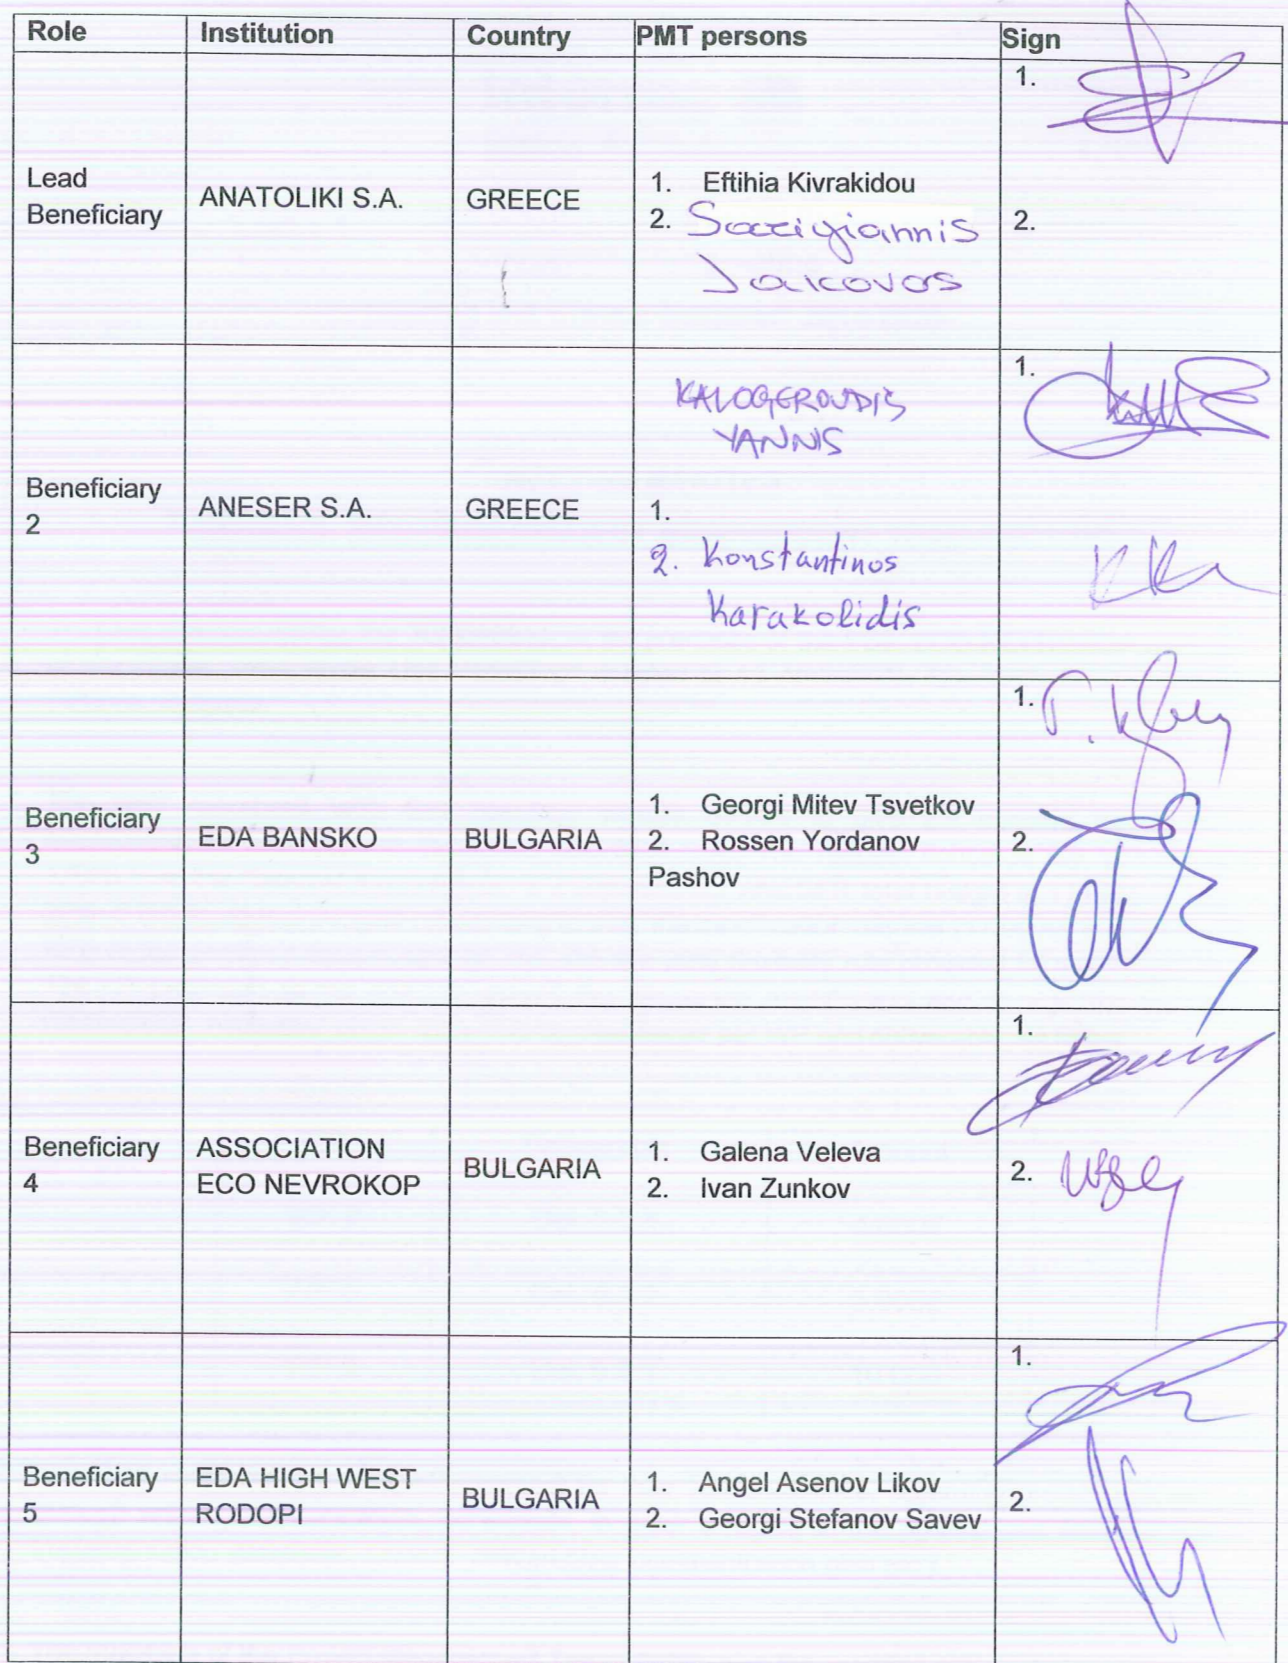 Role Institution Country PMT persons Sign
Lead
Beneficiary
ANATOLIKI S.A.
GREECE
1. Eftihia Kivrakidou
2. Sarigiannis
Iakovos
1.
2.
Beneficiary
2
ANESER S.A.
GREECE
KALOGEROUDIS
YANNIS
1.
2. Konstantinos
Karakolidis
1.
Beneficiary
3
EDA BANSKO
BULGARIA
1. Georgi Mitev Tsvetkov
2. Rossen Yordanov
Pashov
1.
2.
Beneficiary
4
ASSOCIATION
ECO NEVROKOP
BULGARIA
1. Galena Veleva
2. Ivan Zunkov
1.
2.
Beneficiary
5
EDA HIGH WEST
RODOPI
BULGARIA
1. Angel Asenov Likov
2. Georgi Stefanov Savev
1.
2.